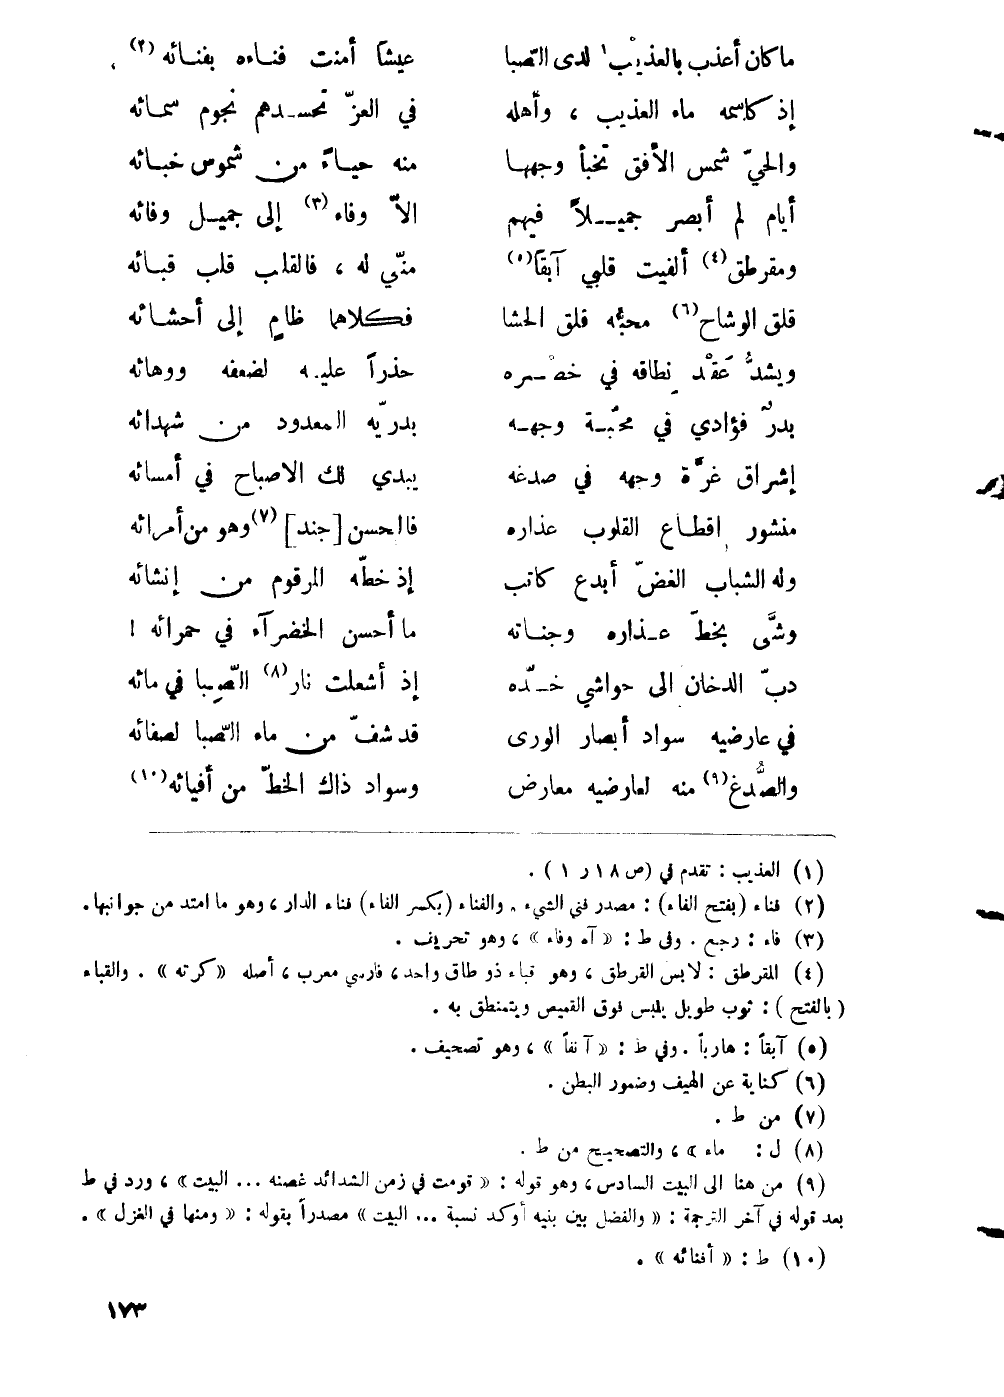 ما كان أعذب بالعذيب١ لدى الصّبا عيشاً أمنت فناءه بفنائه (٢)
إذ كاسمه ماء العذيب ، وأهله في العزّ تحسدهم نجوم سمائه
والحيّ شمس الأفق تخبأ وجهها منه حياءً من شموس خبائه
أيام لم أبصر جميلاً فيهم الاّ وفاء (٣) إلى جميل وفائه
ومقرطق (٤) ألفيت قلبي آبقاً (٥) منّي له ، فالقلب قلب قبائه
قلق الوشاح (٦) محبّه قلق الحشا فكلاهما ظامٍ إلى أحشائه
ويشدُّ عَقْد نطاقه في خصره حذراً عليه لضعفه ووهائه
بدرٌ فؤادي في محبّة وجهه بدريّه المعدود من شهدائه
إشراق غرّة وجهه في صدغه يبدي لك الاصباح في أمسائه
منشور اقطاع القلوب عذاره فالحسن [جند] (٧) وهو من أمرائه
وله الشباب الغضّ أبدع كاتب إذ خطّه المرقوم من إنشائه
وشّى بخطّ عذاره وجناته ما أحسن الخضرآء في حمرائه !
دبّ الدخان الى حواشي خدّه إذ أشعلت نار (٨) الصّبا في مائه
في عارضيه سواد أبصار الورى قد شفّ من ماء الصّبا لصفائه
والصُّدغ (٩) منه لعارضيه معارض وسواد ذاك الخطّ من أفيائه (١٠)
(١) العذيب : تقدم في (ص ١٨ ر ١) .
(٢) فناء (بفتح الفاء) : مصدر فني الشيء . والفناء (بكسر الفاء) فناء الدار ، وهو ما امتد من جوانبها .
(٣) فاء : رجع . وفي ط : « آه وفاء » ، وهو تحريف .
(٤) المقرطق : لابس القرطق ، وهو قباء ذو طاق واحد ، فارسي معرب ، أصله « كرته » . والقباء
( بالفتح ) : ثوب طويل يلبس فوق القميص ويتمنطق به .
(٥) آبقاً : هارباً . وفي ط : « آنفاً » ، وهو تصحيف .
(٦) كناية عن الهيف وضمور البطن .
(٧) من ط .
(٨) ل : ماء » ، والتصحيح من ط .
(٩) من هنا الى البيت السادس ، وهو قوله : « قومت في زمن الشدائد غصنه ... البيت » ، ورد في ط
بعد قوله في آخر الترجمة : « والفضل بين بنيه أوكد نسبة ... البيت » مصدراً بقوله : « ومنها في الغزل » .
(١٠) ط : « أفنائه » .
١٧٣